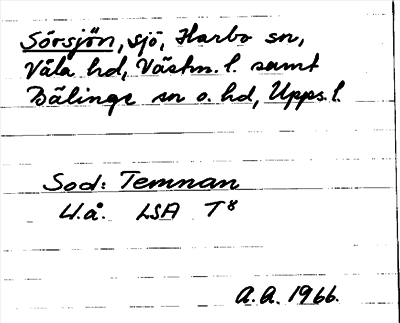 Sörsjön, sjö, Harbo sn,
Våla hd, Västm. l. samt
Bälinge sn o. hd, Upps. l.
Sod: Temnan
U.å. LSA T8
A.A. 1966.